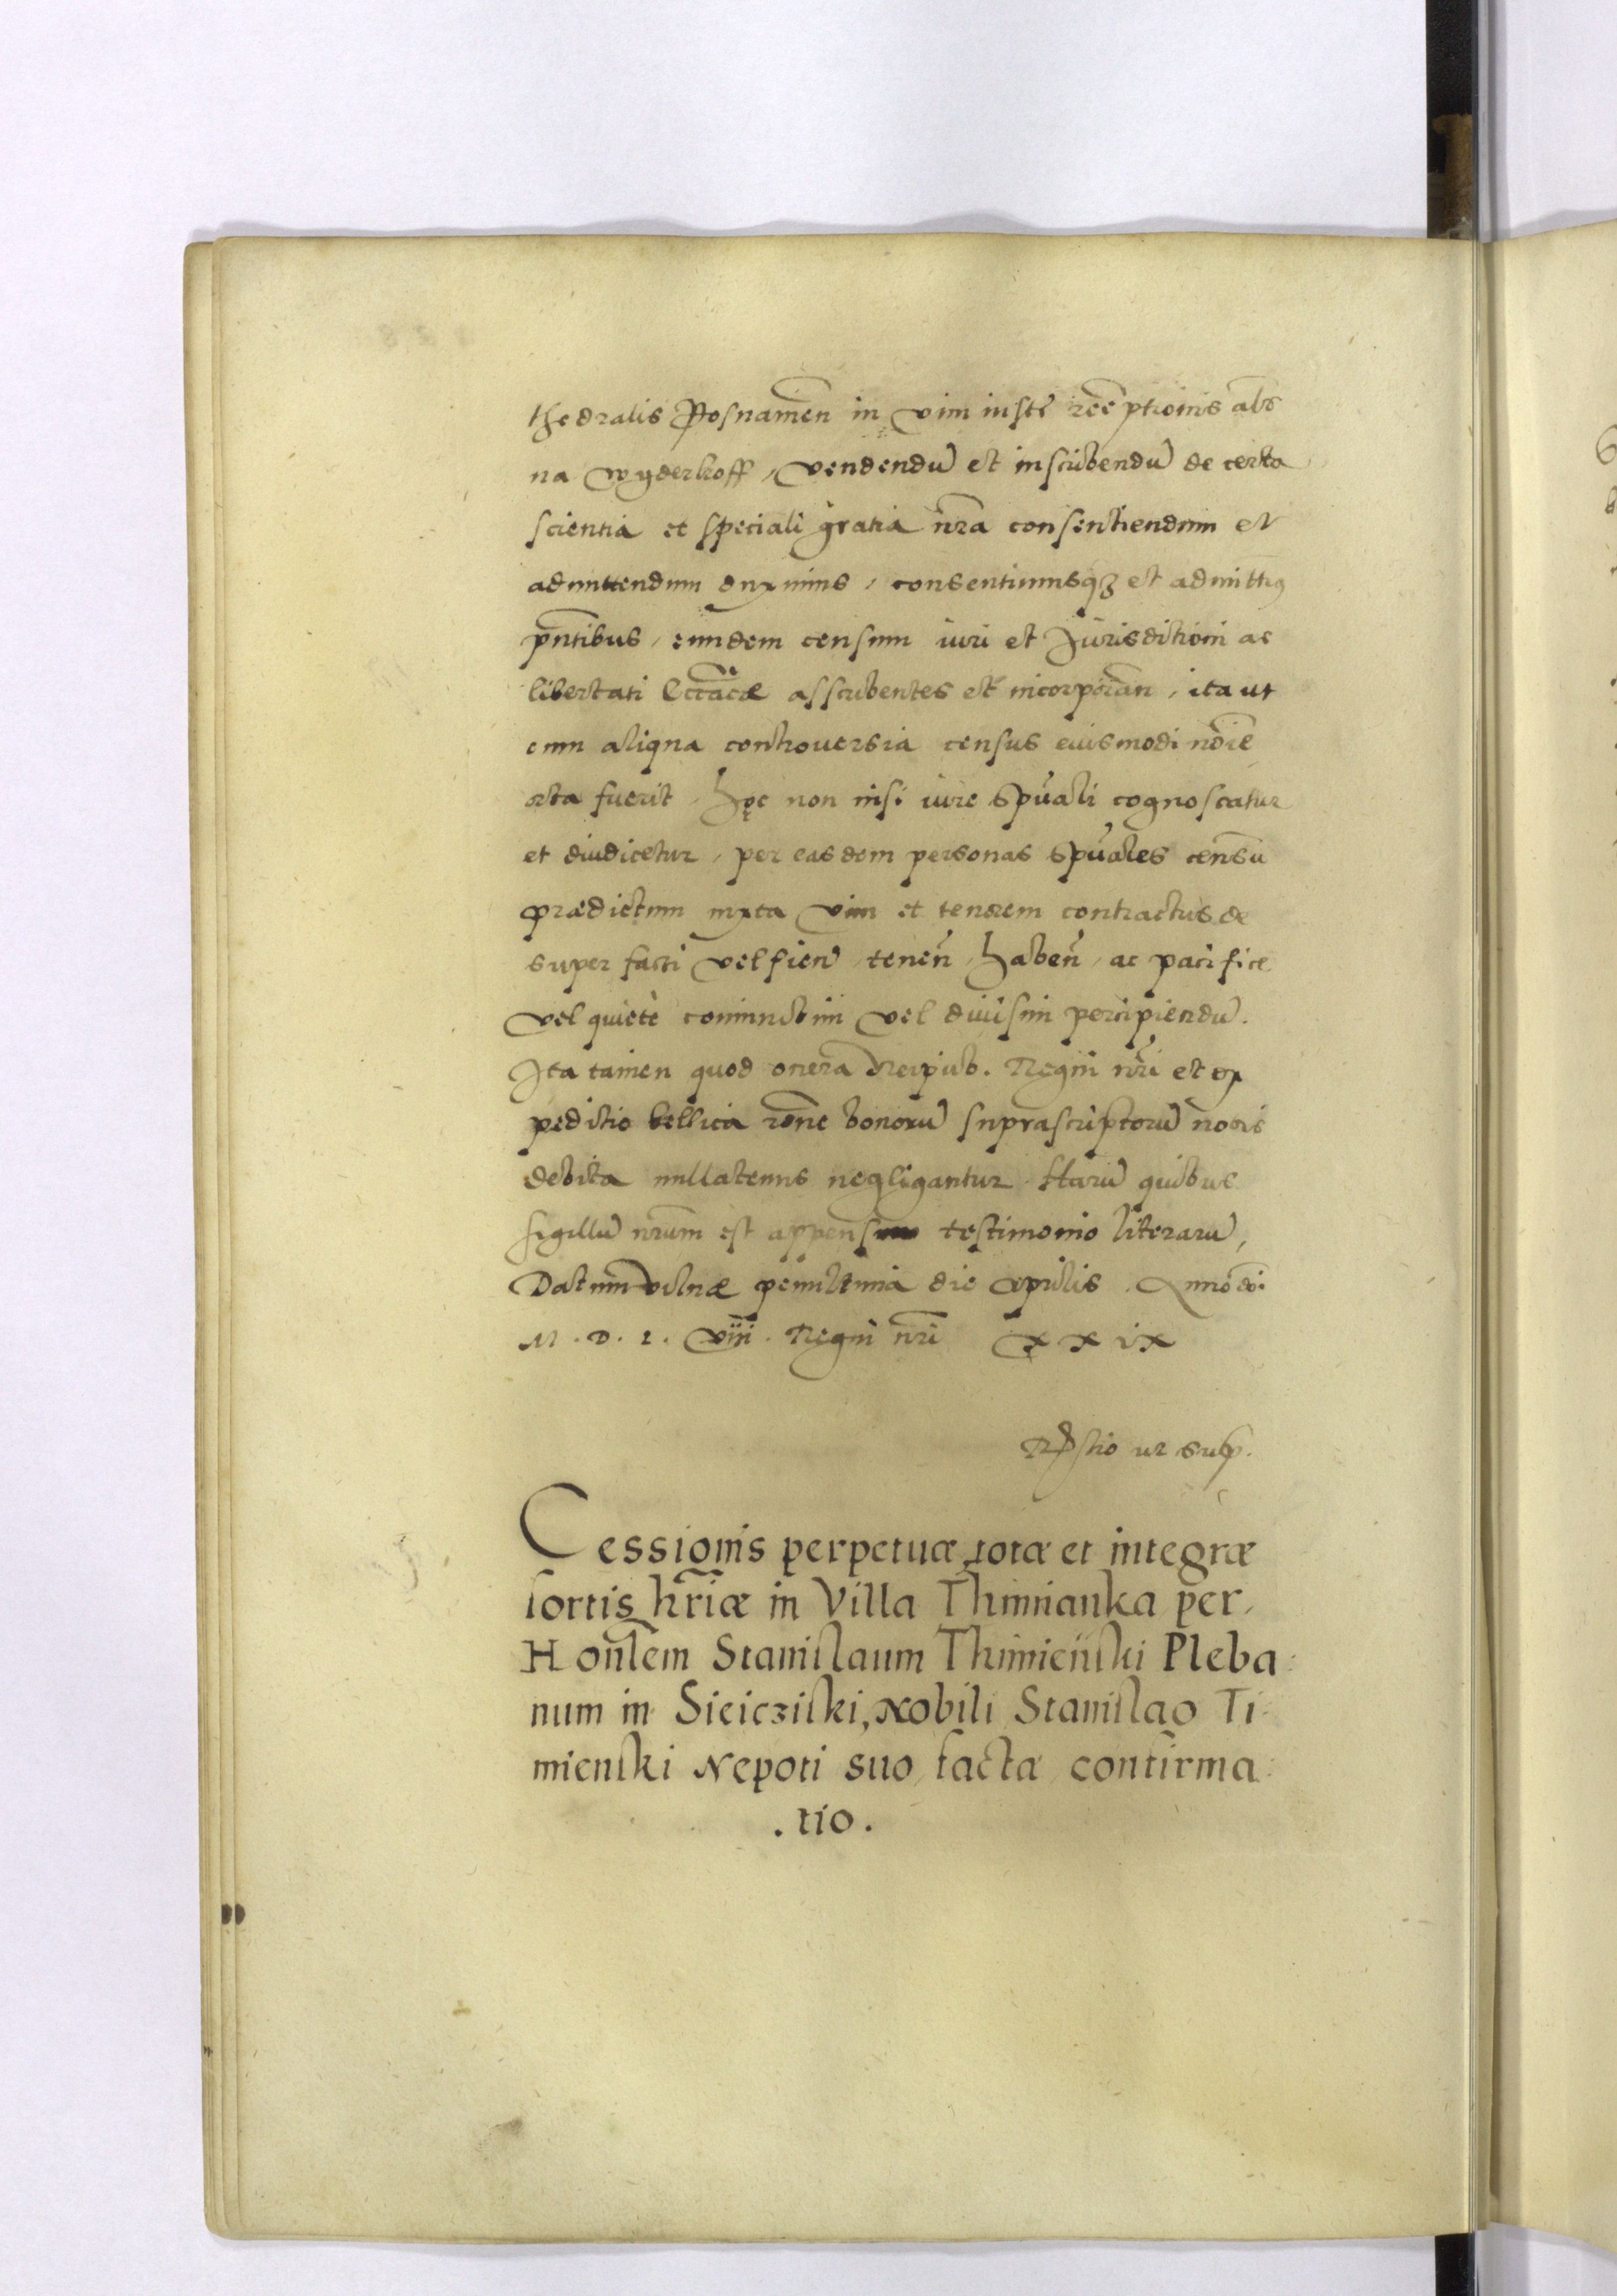 thedralis Posnamen̄ in vim iuste reēptionis abs
na wyderkoff, vendendū et inscribendū de certa
scientia et speciali gratia nr̄a consentiendum et
admittendum duximus, consentimusqꝫ et admittimꝰ
pn̄tibus, eundem censum iuri et Jurisditioni ac
libertati Ecc̄ᵃcæ asscribentes et incorporan̄, ita ut
cum aliqua controuersia census eiusmodi nōie
orta fuerit, hęc non nisi iure spūali cognoscatur
et diiudicetur, per easdem personas spūales censū
prædictum iuxta vim et tenorem contractus de
super facti vel fien̄, tenen̄, haben̄, ac pacifice
vel quietè coniunctim vel diuisim percipiendū.
Ita tamen quod onera Reipub. Regni nr̄i et ex
peditio bellica rōne bonorū suprascriptorū nobis
debita nullatenus negligantur. Harū quibus
sigillū nr̄um est appensum testimonio literarū,
Datum Vilnæ penultima die Aprilis. Anno dōi
M. D. L. viii. Regni nr̄i xxix
Rſtio ut sup.
Cessionis perpetuæ, totæ et integræ
sortis hr̄iæ in Villa Thimianka per
Honl̄em Stanislaum Thimieński Pleba
num in Sieicziski, Nobili Stanislao Ti
mienski Nepoti suo facta confirma
.tio.